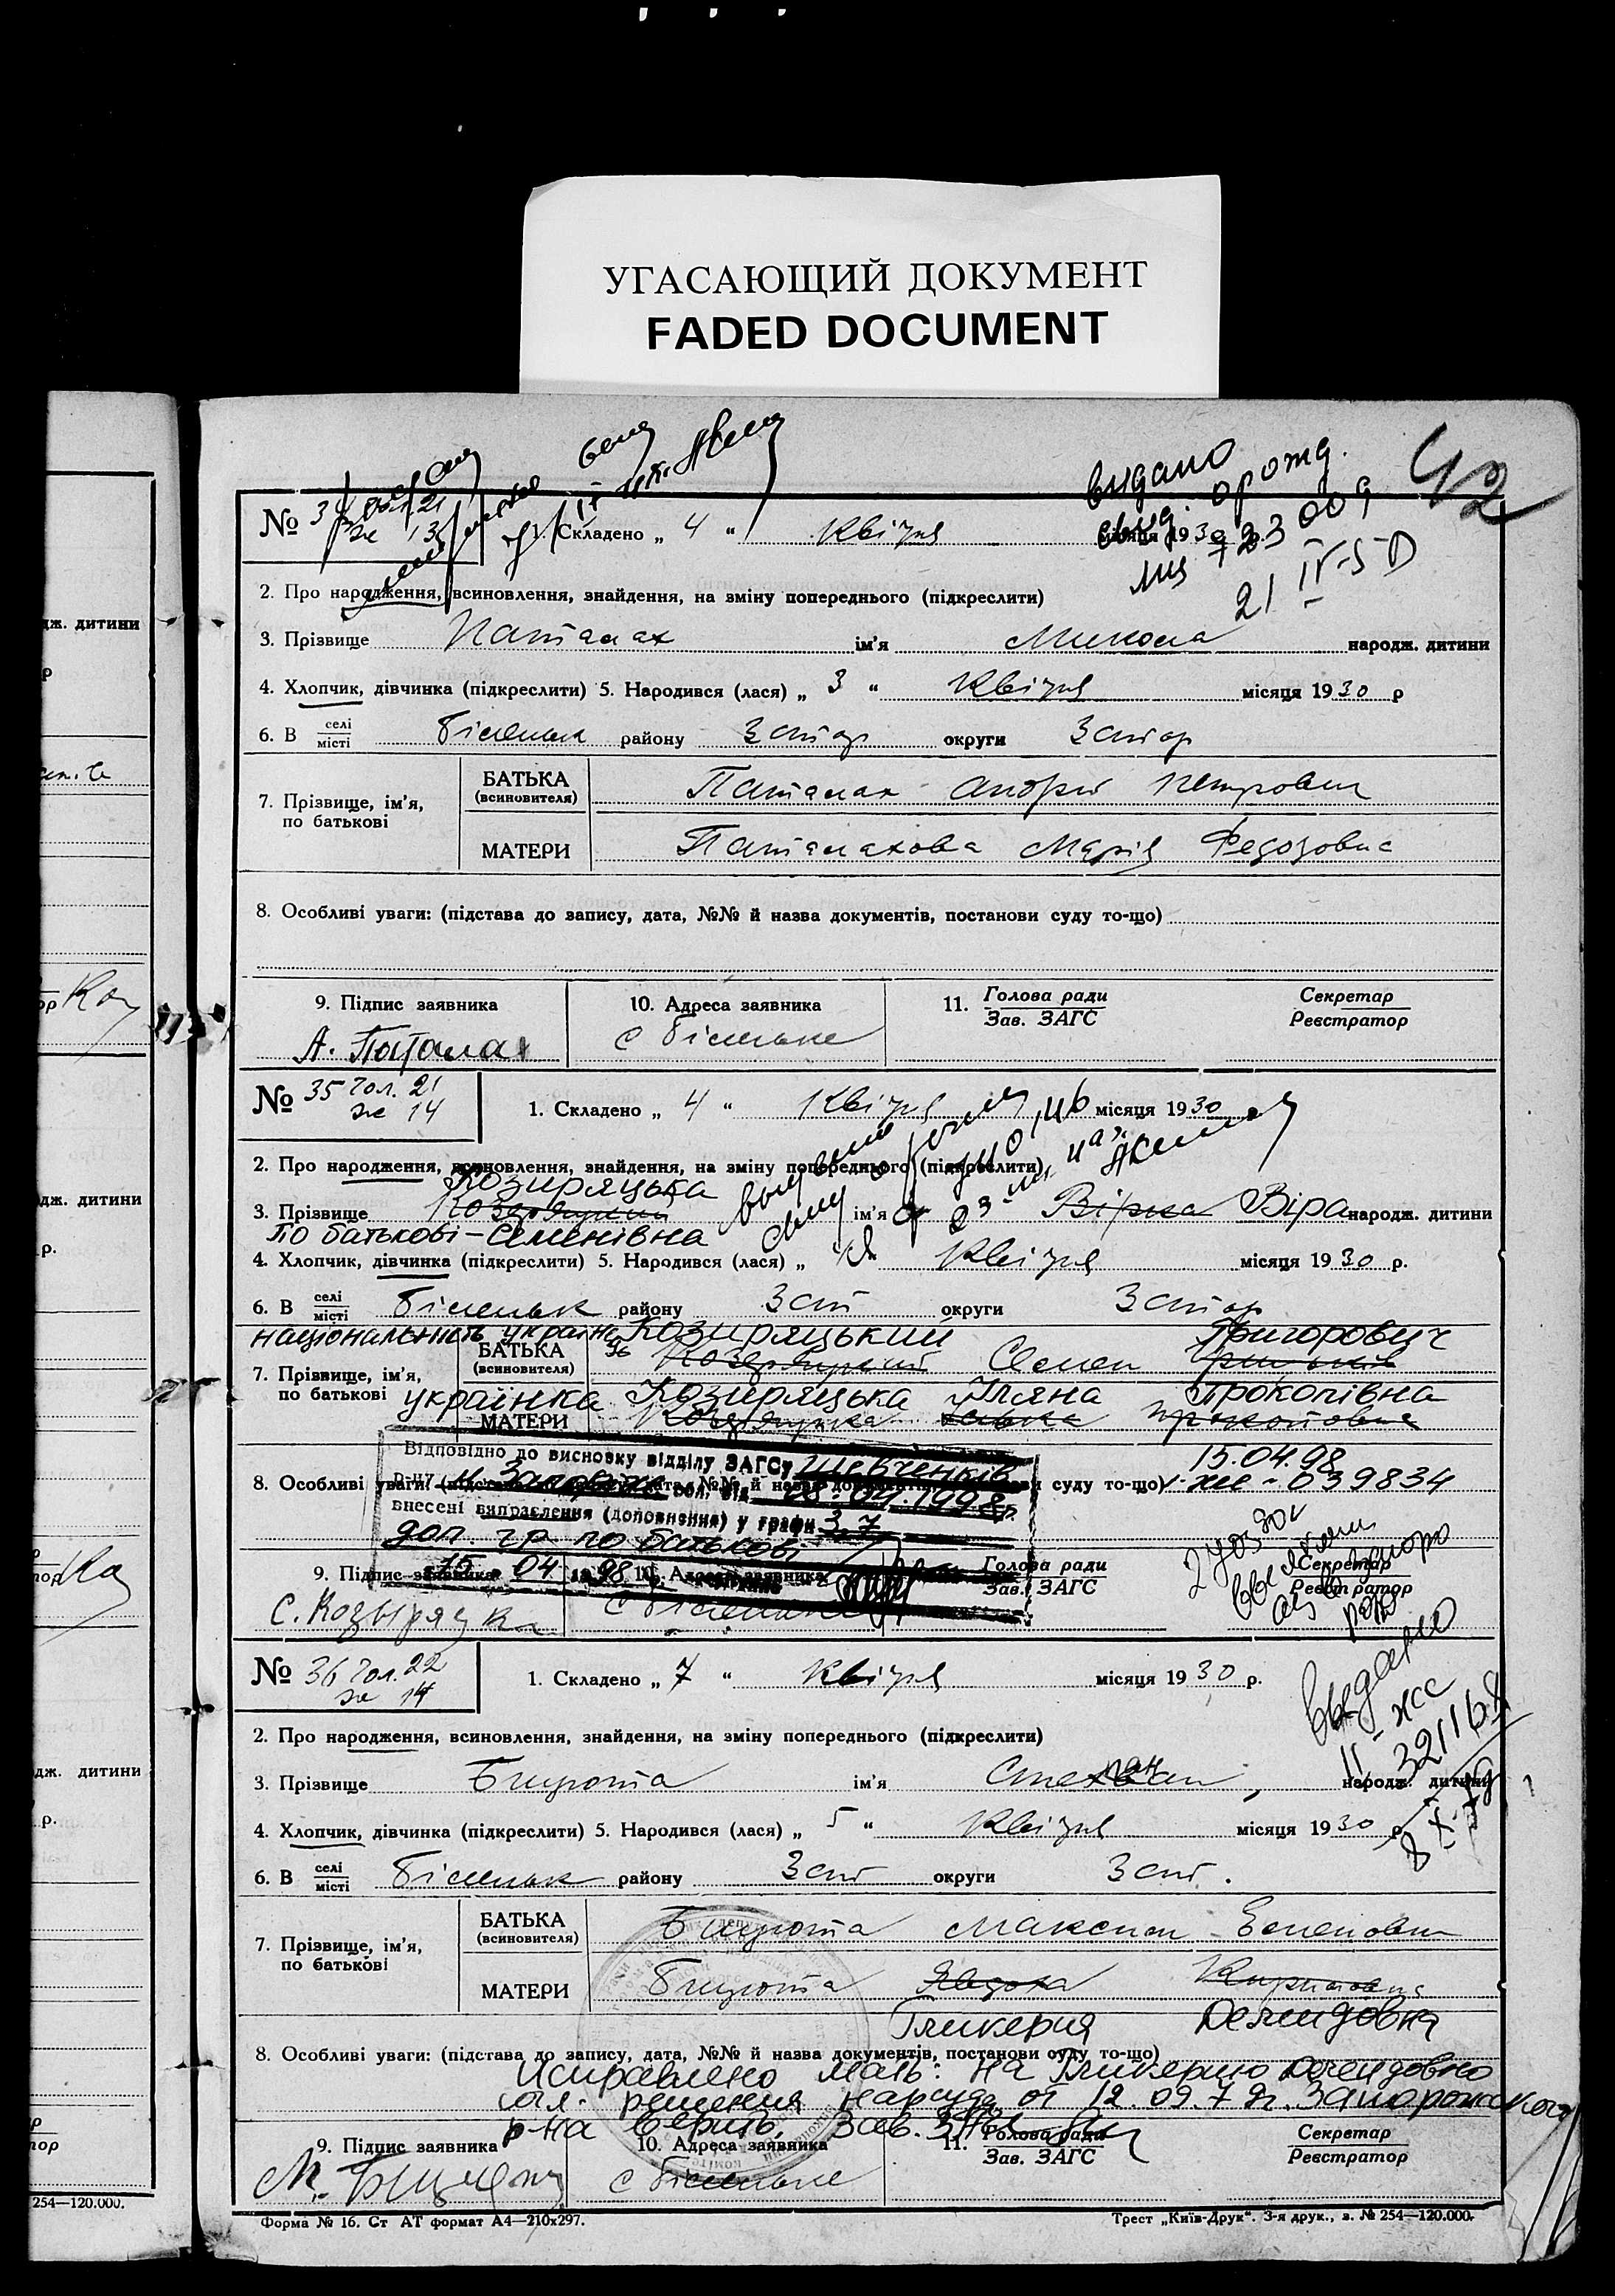 УГАСАЮЩИЙ ДОКУМЕНТ
FADED DOCUMENT
42
видано
о рожд.
21 IV-50
№ 34 чол. 21
ж 13
1. Складено „ 4 “ Квітня місяця 1930
2. Про народження, всиновлення, знайдення, на зміну попереднього (підкреслити)
3. Прізвище Паталах ім'я Микола народж. дитини
4. Хлопчик, дівчинка (підкреслити) 5. Народився (лася) „ 3 “ Квітня місяця 1930 р
6. В селі/місті Біленьк району Запор округи Запор
7. Прізвище, ім'я, по батькові
БАТЬКА (всиновителя) Паталах Андрій Петрович
МАТЕРИ Паталахова Марія Федоровна
8. Особливі уваги: (підстава до запису, дата, №№ й назва документів, постанови суду то-що)
9. Підпис заявника 10. Адреса заявника 11. Голова ради/Зав. ЗАГС Секретар/Реєстратор
А. Паталах с Біленьке
№ 35 чол. 21
ж 14
1. Складено „ 4 “ Квітня місяця 1930
2. Про народження, всиновлення, знайдення, на зміну попереднього (підкреслити)
Козиряцька
3. Прізвище ім'я Вірка Віра народж. дитини
По батькові – Семенівна
4. Хлопчик, дівчинка (підкреслити) 5. Народився (лася) „ Квітня місяця 1930 р.
6. В селі/місті Біленьк району Зап округи Запор
національність українець Козиряцький Григорович
7. Прізвище, ім'я, по батькові
БАТЬКА (всиновителя) Семен
українка Козиряцька Уляна Прокопівна
МАТЕРИ
Відповідно до висновку відділу ЗАГСу Шевченків
15.04.98
8. Особливі уваги: (підстава до запису, дата, №№ й назва документів, постанови суду то-що) 039834
р-ну м. Запоріжжя обл. від 08.04.1998р.
внесені виправлення (доповнення) у графи 3,7
доп. гр. по батькові
15. 04 1998
9. Підпис заявника 10. Адреса заявника Голова ради/Зав. ЗАГС Секретар/Реєстратор
С. Козыряцки с Біленьке
№ 36 чол. 22
ж 14
1. Складено „ 7 “ Квітня місяця 1930 р.
Выдано
321168
2. Про народження, всиновлення, знайдення, на зміну попереднього (підкреслити)
3. Прізвище Бицюта ім'я Степан народж. дитини
4. Хлопчик, дівчинка (підкреслити) 5. Народився (лася) „ 5 “ Квітня місяця 1930 р
6. В селі/місті Біленьк району Зап округи Зап.
7. Прізвище, ім'я, по батькові
БАТЬКА (всиновителя) Бицюта Максим
МАТЕРИ Бицюта Явдоха
Гликерия Демидовна
8. Особливі уваги: (підстава до запису, дата, №№ й назва документів, постанови суду то-що)
Исправлено мать: на Гликерию Демидовну
решения нарсуда от 12.09.79г. Запорожского
р-на Верно, Зав.
9. Підпис заявника 10. Адреса заявника 11. Голова ради/Зав. ЗАГС Секретар/Реєстратор
М. Бицюта с Біленьке
Форма № 16. Ст АТ формат А4—210х297.
Трест „Київ-Друк“. 3-я друк., з. № 254—120.000.
дж. дитини
р
дж. дитини
р.
дж. дитини
р.
254—120.000.